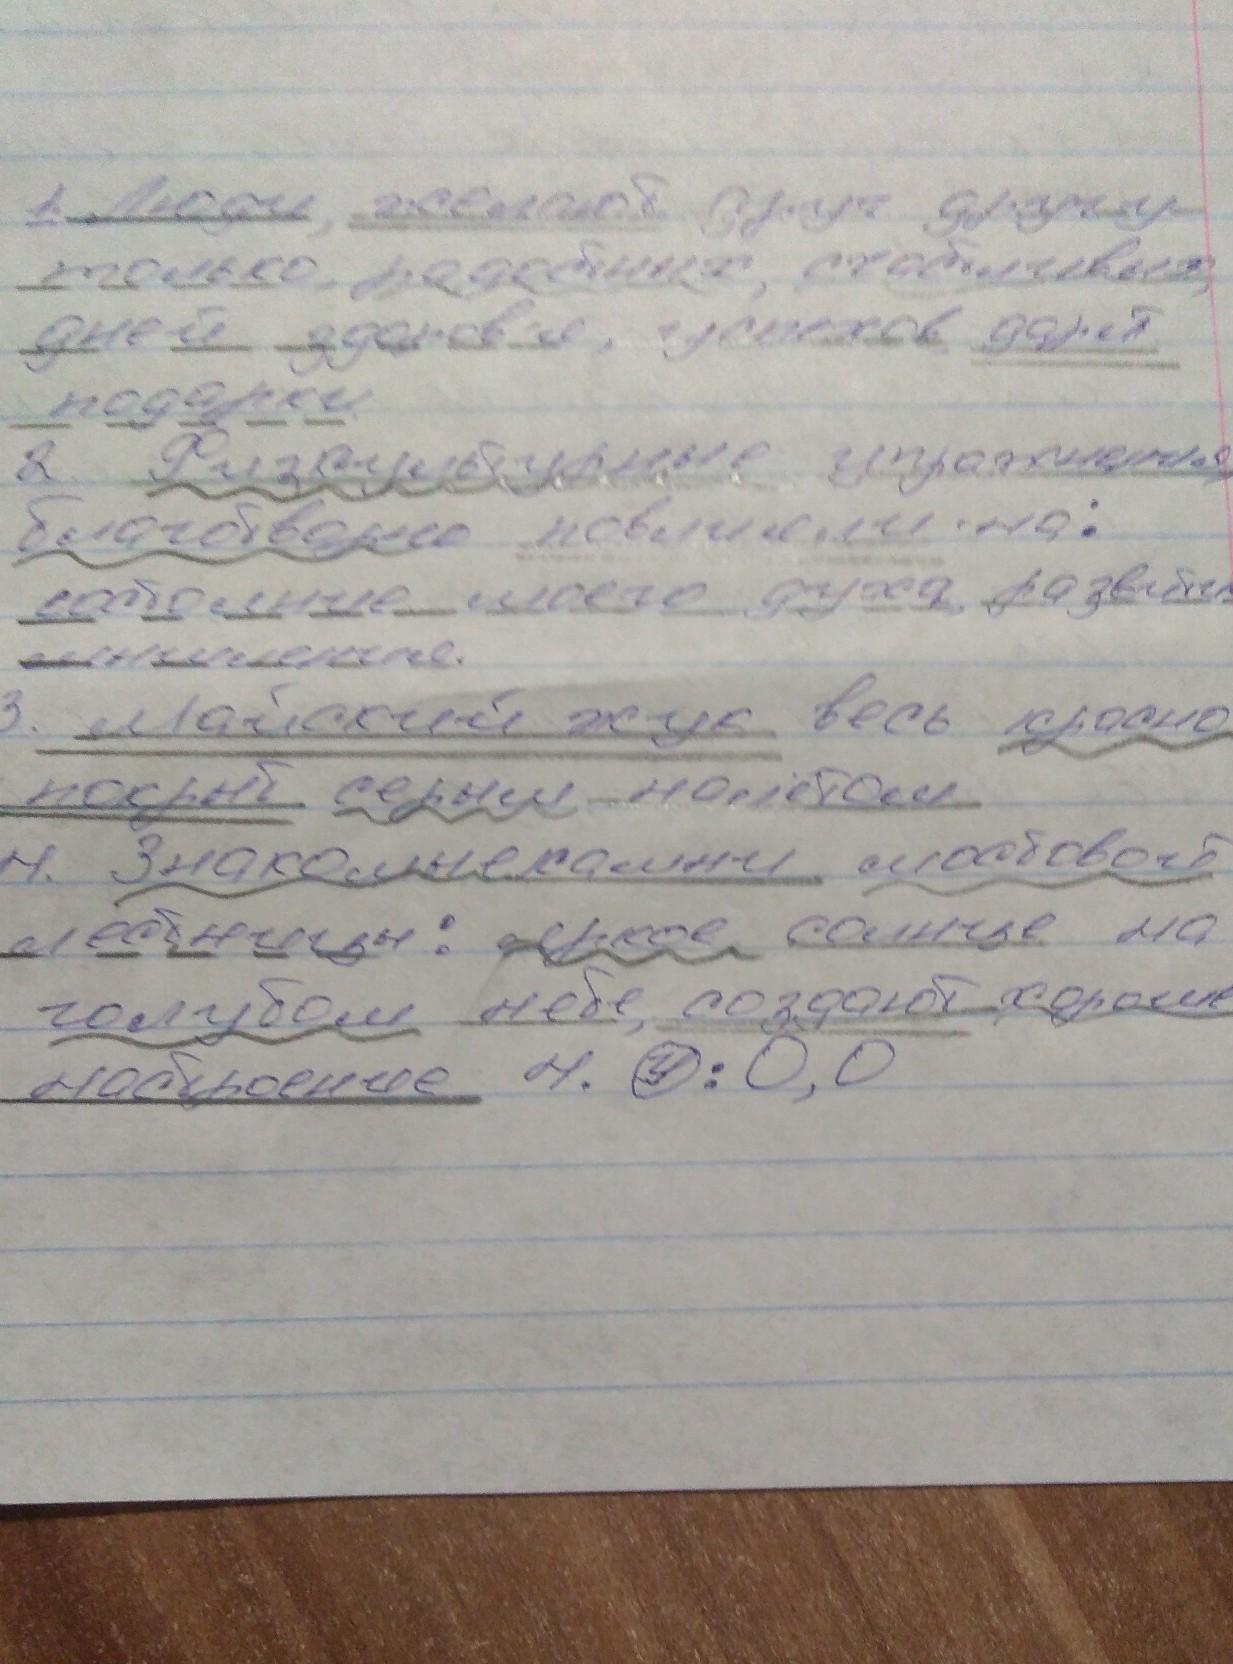 1. Люди, желают друг другу
только, радостных, счастливых,
дней здоров'я, успехов дарят
подарки
2. Физкультурные
благотворно повлияли на:
состояние моего духа,
3. Майский жук весь красно
покрыт серым налётом
4. Знакомые камни мостовой
лестницы: яркое солнце на
голубом небе, создают хорошее
настроение 4. У: О, О